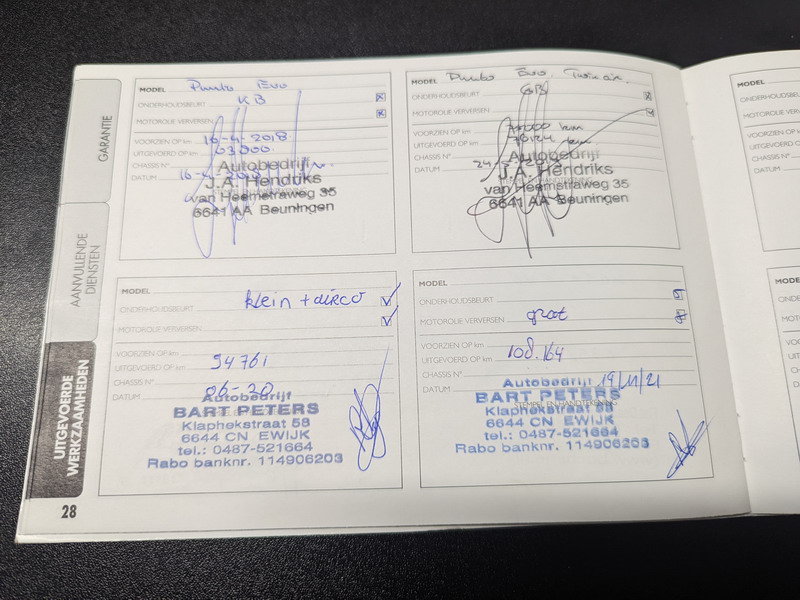 GARANTIE
AANVULLENDE
DIENSTEN
UITGEVOERDE
WERKZAAMHEDEN
28
MODEL Punto Evo
ONDERHOUDSBEURT KB
MOTOROLIE VERVERSEN
VOORZIEN OP km 16-4-2018
UITGEVOERD OP km 63000
CHASSIS N°
DATUM
Autobedrijf
J.A. Hendriks
van Heemstraweg 35
6641 AA Beuningen
MODEL Punto Evo Twin air
ONDERHOUDSBEURT GB
MOTOROLIE VERVERSEN
VOORZIEN OP km
UITGEVOERD OP km
CHASSIS N°
DATUM
Autobedrijf
J.A. Hendriks
van Heemstraweg 35
6641 AA Beuningen
MODEL
ONDERHOUDSBEURT klein + airco
MOTOROLIE VERVERSEN
VOORZIEN OP km
UITGEVOERD OP km 94761
CHASSIS N°
DATUM 06-20
Autobedrijf
BART PETERS
Klaphekstraat 58
6644 CN EWIJK
tel.: 0487-521664
Rabo banknr. 114906203
MODEL
ONDERHOUDSBEURT
MOTOROLIE VERVERSEN groot
VOORZIEN OP km
UITGEVOERD OP km 108.164
CHASSIS N°
DATUM 19/11/21
STEMPEL EN HANDTEKENING
Autobedrijf
BART PETERS
Klaphekstraat 58
6644 CN EWIJK
tel.: 0487-521664
Rabo banknr. 114906203
MODEL
ONDERHOUDSBEU
MOTOROLIE VER
VOORZIEN OP k
UITGEVOERD O
CHASSIS N°
DATUM
MODEL
ONDERHOUDS
MOTOROLIE V
VOORZIEN O
UITGEVOERD
CHASSIS N°
DATUM